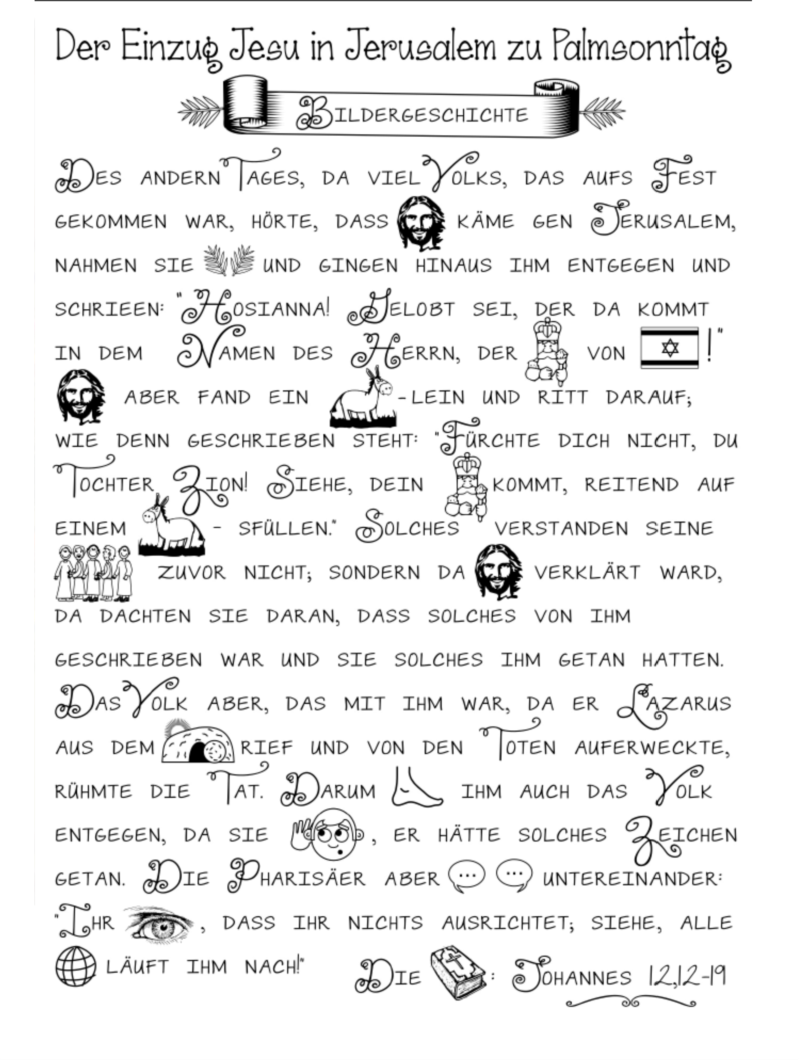 Der Einzug Jesu in Jerusalem zu Palmsonntag
BILDERGESCHICHTE
DES ANDERN TAGES, DA VIEL VOLKS, DAS AUFS FEST
GEKOMMEN WAR, HÖRTE, DASS KÄME GEN JERUSALEM,
NAHMEN SIE UND GINGEN HINAUS IHM ENTGEGEN UND
SCHRIEEN: "HOSIANNA! GELOBT SEI, DER DA KOMMT
IN DEM NAMEN DES HERRN, DER VON !"
ABER FAND EIN -LEIN UND RITT DARAUF;
WIE DENN GESCHRIEBEN STEHT: "FÜRCHTE DICH NICHT, DU
TOCHTER ZION! SIEHE, DEIN KOMMT, REITEND AUF
EINEM - SFÜLLEN." SOLCHES VERSTANDEN SEINE
ZUVOR NICHT; SONDERN DA VERKLÄRT WARD,
DA DACHTEN SIE DARAN, DASS SOLCHES VON IHM
GESCHRIEBEN WAR UND SIE SOLCHES IHM GETAN HATTEN.
DAS VOLK ABER, DAS MIT IHM WAR, DA ER LAZARUS
AUS DEM RIEF UND VON DEN TOTEN AUFERWECKTE,
RÜHMTE DIE TAT. DARUM IHM AUCH DAS VOLK
ENTGEGEN, DA SIE , ER HÄTTE SOLCHES ZEICHEN
GETAN. DIE PHARISÄER ABER UNTEREINANDER:
"IHR , DASS IHR NICHTS AUSRICHTET; SIEHE, ALLE
LÄUFT IHM NACH!" DIE : JOHANNES 12,12-19